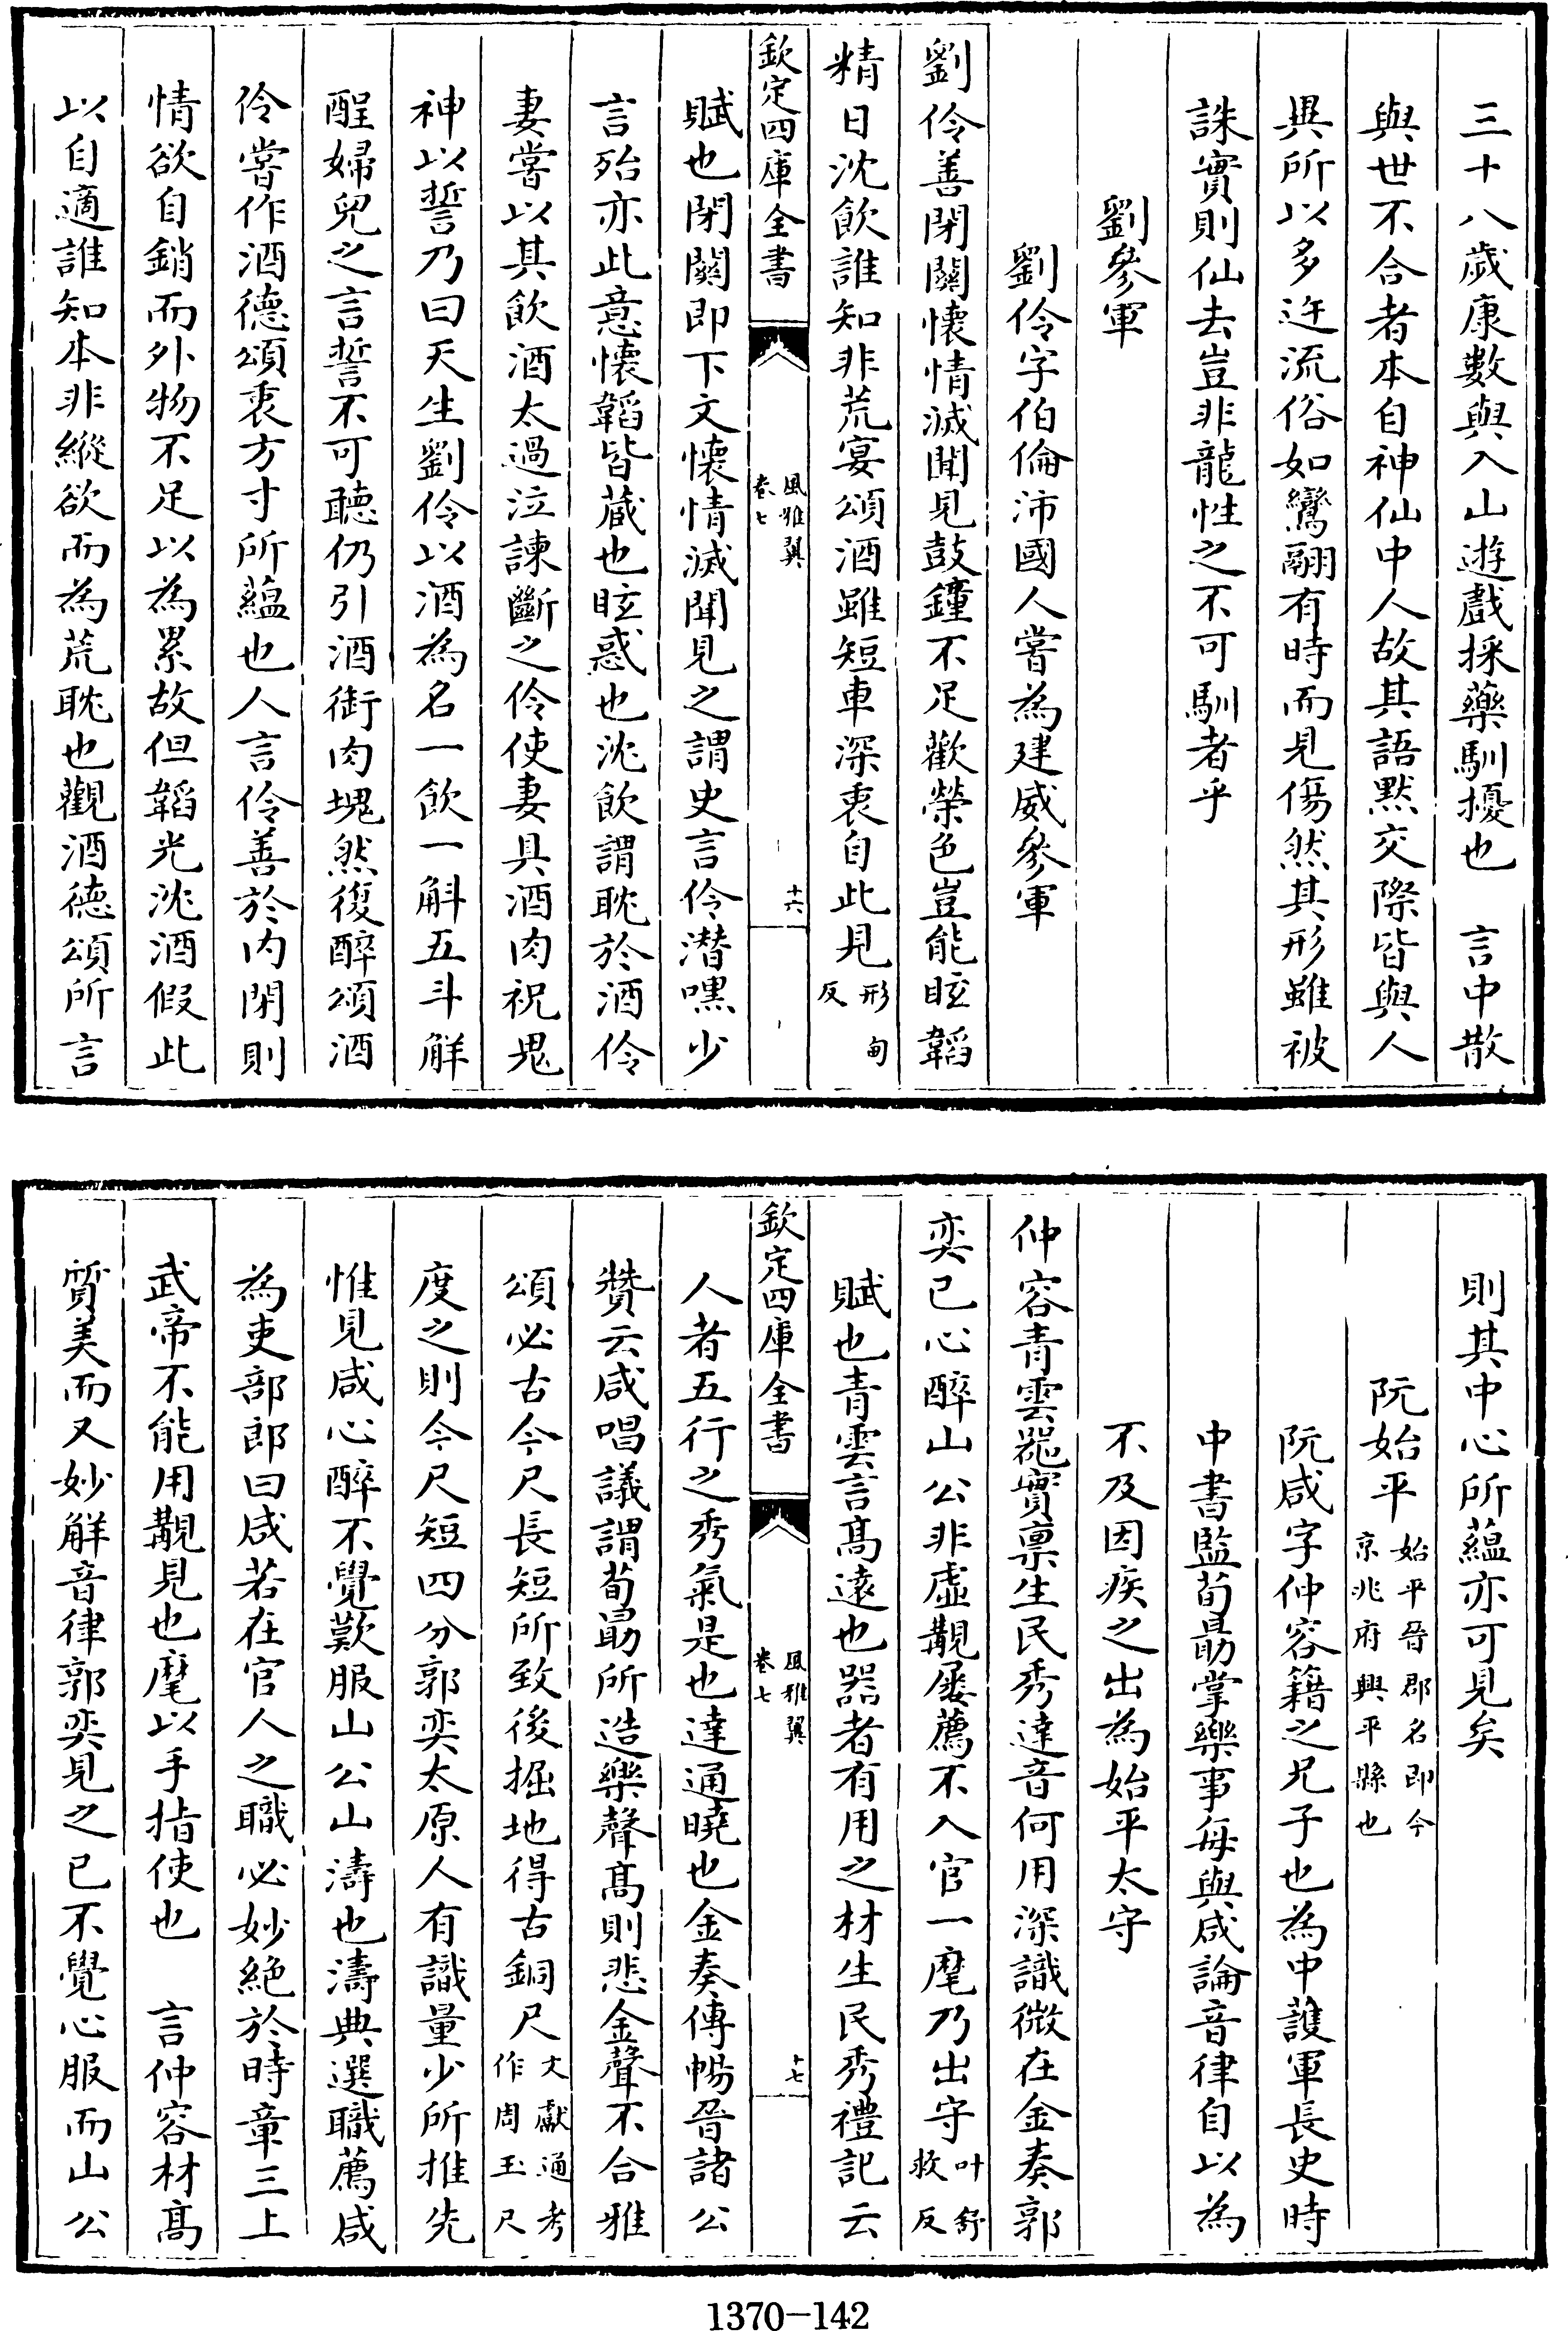 三十八歲康數與入山遊戲採藥馴擾也　言中散
與世不合者本自神仙中人故其語黙交際皆與人
異所以多迕流俗如鸞翮有時而見傷然其形雖被
誅實則仙去豈非龍性之不可馴者乎
劉參軍
劉伶字伯倫沛國人嘗為建威參軍
劉伶善閉關懷情滅聞見鼓鐘不足歡榮色豈能眩韜
精日沈飲誰知非荒宴頌酒雖短車深衷自此見形甸反
欽定四庫全書
風雅翼
卷七
十六
賦也閉關即下文懷情滅聞見之謂史言伶潛嘿少
言殆亦此意懷韜皆藏也眩惑也沈飲謂耽於酒伶
妻嘗以其飲酒太過泣諫斷之伶使妻具酒肉祝鬼
神以誓乃曰天生劉伶以酒為名一飲一斛五斗解
酲婦兒之言誓不可聽仍引酒銜肉塊然復醉頌酒
伶嘗作酒德頌衷方寸所蘊也人言伶善於内閉則
情欲自銷而外物不足以為累故但韜光沈酒假此
以自適誰知本非縱欲而為荒耽也觀酒德頌所言
則其中心所蘊亦可見矣
阮始平始平晉郡名即今京兆府興平縣也
阮咸字仲容籍之兄子也為中護軍長史時
中書監荀勗掌樂事每與咸論音律自以為
不及因疾之出為始平太守
仲容青雲器實稟生民秀達音何用深識微在金奏郭
奕已心醉山公非虛覯屢薦不入官一麾乃出守叶舒救反
賦也青雲言髙遠也器者有用之材生民秀禮記云
欽定四庫全書
風雅翼
卷七
十七
人者五行之秀氣是也達通曉也金奏傳暢晉諸公
贊云咸唱議謂荀勗所造樂聲髙則悲金聲不合雅
頌必古今尺長短所致後掘地得古銅尺文獻通考作周玉尺
度之則今尺短四分郭奕太原人有識量少所推先
惟見咸心醉不覺歎服山公山濤也濤典選職薦咸
為吏部郎曰咸若在官人之職必妙絶於時章三上
武帝不能用覯見也麾以手指使也　言仲容材髙
質美而又妙解音律郭奕見之已不覺心服而山公
1370-142